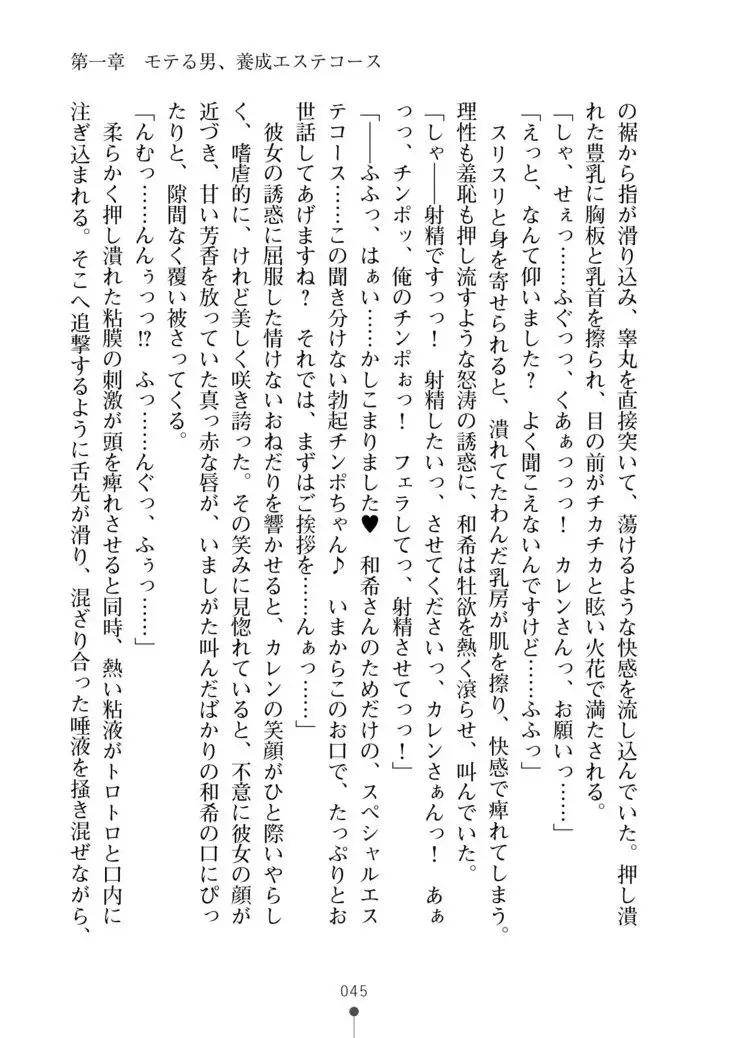 第一章　モテる男、養成エステコース
の裾から指が滑り込み、睾丸を直接突いて、蕩けるような快感を流し込んでいた。押し潰
れた豊乳に胸板と乳首を擦られ、目の前がチカチカと眩い火花で満たされる。
「しゃ、せぇっ……ふぐっっ、くあぁっっっ！　カレンさんっ、お願いっ……」
「えっと、なんて仰いました？　よく聞こえないんですけど……ふふっ」
　スリスリと身を寄せられると、潰れてたわんだ乳房が肌を擦り、快感で痺れてしまう。
理性も羞恥も押し流すような怒涛の誘惑に、和希は牡欲を熱く滾らせ、叫んでいた。
「しゃ――射精ですっっ！　射精したいっ、させてくださいっ、カレンさぁんっ！　あぁ
っっ、チンポッ、俺のチンポぉっ！　フェラしてっ、射精させてっっ！」
「――ふふっ、はぁい……かしこまりました♥　和希さんのためだけの、スペシャルエス
テコース……この聞き分けない勃起チンポちゃん♪　いまからこのお口で、たっぷりとお
世話してあげますね？　それでは、まずはご挨拶を……んぁっ……」
　彼女の誘惑に屈服した情けないおねだりを響かせると、カレンの笑顔がひと際いやらし
く、嗜虐的に、けれど美しく咲き誇った。その笑みに見惚れていると、不意に彼女の顔が
近づき、甘い芳香を放っていた真っ赤な唇が、いましがた叫んだばかりの和希の口にぴっ
たりと、隙間なく覆い被さってくる。
「んむっ……んんぅっっ!?　ふっ……んぐっ、ふぅっ……」
　柔らかく押し潰れた粘膜の刺激が頭を痺れさせると同時、熱い粘液がトロトロと口内に
注ぎ込まれる。そこへ追撃するように舌先が滑り、混ざり合った唾液を掻き混ぜながら、
045